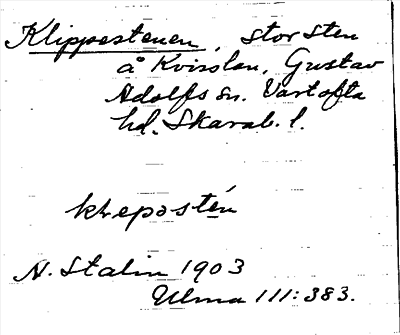 Klippestenen, stor sten
å Kvisslan, Gustav
Adolfs sn. Vartofta
hd. Skarab. l.
klepəstén
N. Stalin 1903
Ulma 111:383.